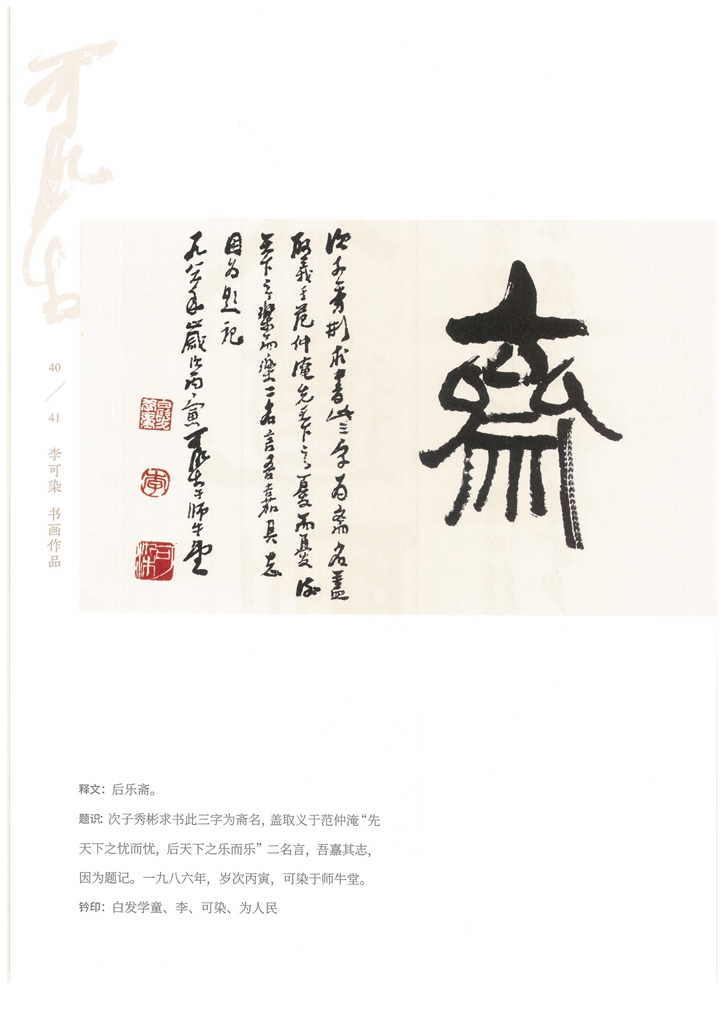 可染
40
41
李可染 书画作品
齋
次子秀彬求書此三字為齋名蓋
取義于范仲淹先天下之憂而憂後
天下之樂而樂二名言吾嘉其志
因為題記
一九八六年歲次丙寅可染于師牛堂
白髮學童
李
可染
释文：后乐斋。
题识：次子秀彬求书此三字为斋名，盖取义于范仲淹“先
天下之忧而忧，后天下之乐而乐”二名言，吾嘉其志，
因为题记。一九八六年，岁次丙寅，可染于师牛堂。
钤印：白发学童、李、可染、为人民